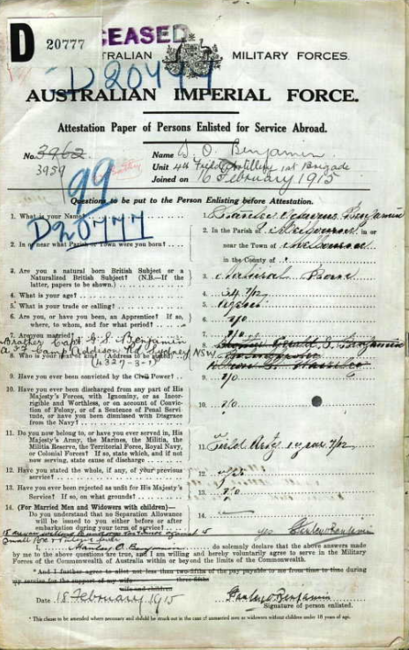 D 20777
DECEASED
AUSTRALIAN MILITARY FORCES.
D20777
AUSTRALIAN IMPERIAL FORCE.
Attestation Paper of Persons Enlisted for Service Abroad.
No. 3962
3959
Name O. Benjamin
Unit 4th Field Artillery 1st Brigade
Joined on 16 February 1915
99
Questions to be put to the Person Enlisting before Attestation.
D20777
1. What is your Name? 1. Benjamin
2. In or near what Parish or Town were you born? 2. In the Parish of Melbourne in or
near the Town of Melbourne
in the County of
3. Are you a natural born British Subject or a
Naturalized British Subject? (N.B.—If the
latter, papers to be shown.) 3. Natural Born
4. What is your age? 4. 24 7/12
5. What is your trade or calling? 5.
6. Are you, or have you been, an Apprentice? If so,
where, to whom, and for what period? 6.
7. Are you married? 7. No
Brother Capt G. S. Benjamin
8. Who is your next of kin? (Address to be stated) 8.
Sydney NSW
9. Have you ever been convicted by the Civil Power? 9. No
10. Have you ever been discharged from any part of His
Majesty's Forces, with Ignominy, or as Incor-
rigible and Worthless, or on account of Convic-
tion of Felony, or of a Sentence of Penal Servi-
tude, or have you been dismissed with Disgrace
from the Navy? 10. No
11. Do you now belong to, or have you ever served in, His
Majesty's Army, the Marines, the Militia, the
Militia Reserve, the Territorial Force, Royal Navy,
or Colonial Forces? If so, state which, and if not
now serving, state cause of discharge 11. Field Arty 1 year 7/12
12. Have you stated the whole, if any, of your previous
service? 12. Yes
13. Have you ever been rejected as unfit for His Majesty's
Service? If so, on what grounds? 13. No
14. (For Married Men and Widowers with children)—
Do you understand that no Separation Allowance
will be issued to you either before or after
embarkation during your term of service? 14.
15. 5 yes Benjamin
I, Stanley O Benjamin do solemnly declare that the above answers made
by me to the above questions are true, and I am willing and hereby voluntarily agree to serve in the Military
Forces of the Commonwealth of Australia within or beyond the limits of the Commonwealth.
*And I further agree to allot not less than two-fifths of the pay payable to me from time to time during
my service for the support of my wife
three-fifths
wife and children
Date 18 February 1915
Stanley O Benjamin
Signature of person enlisted.
* This clause should be struck out in the case of unmarried men or widowers without children under 18 years of age.